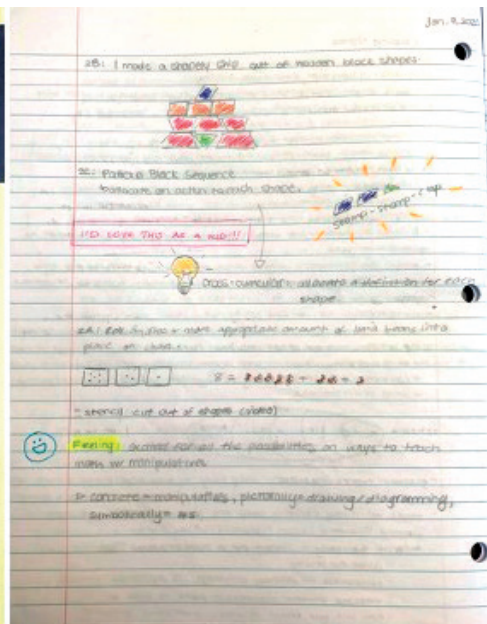 Jan. 9, 202
2B: I made a shapely ship out of wooden block shapes.
2C: Pattern Block Sequence
an action to each shape.
stomp-stomp-clap
I'D LOVE THIS AS A KID!!!
cross-curricular: allocate a for each
shape.
2A: + move appropriate amount of lima beans into
place on
8 = + +
- stencil cut out of shapes (video)
Feeling: excited for all the possibilities on ways to teach
math w/ manipulatives
concrete = manipulatives, pictorially = drawing/diagramming,
symbolically = #s